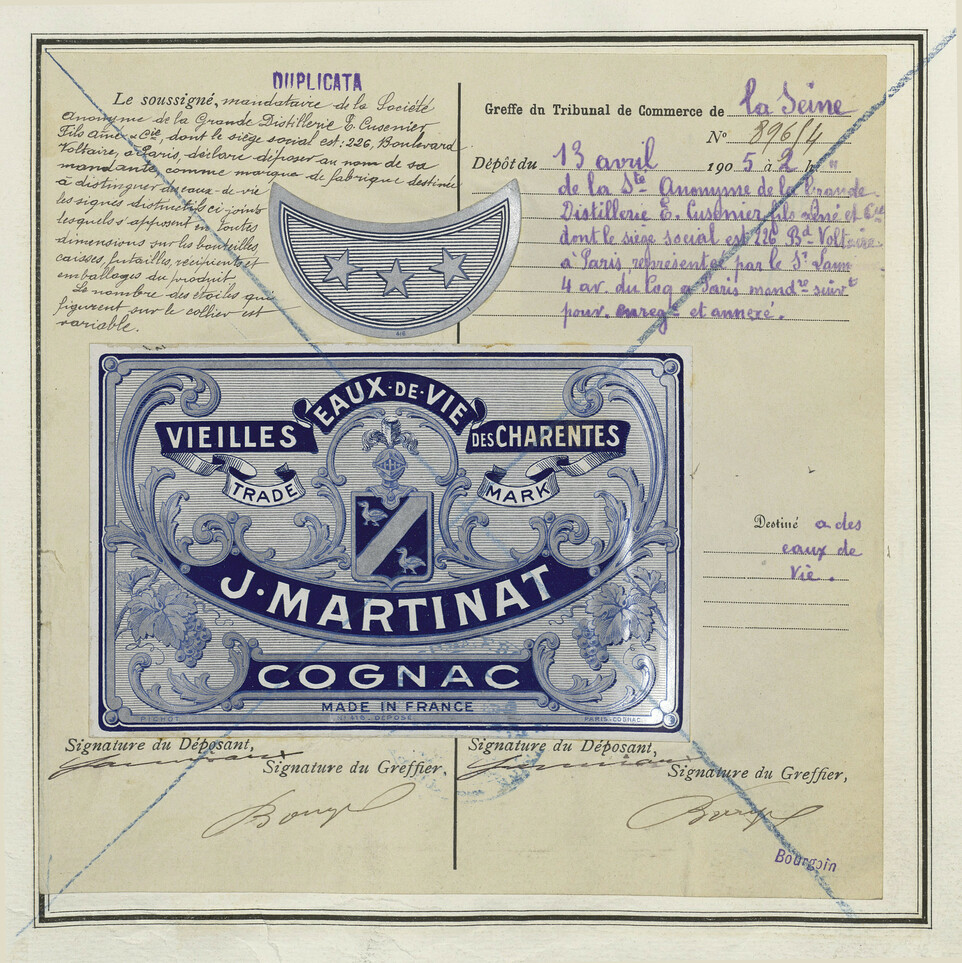 DUPLICATA
Le soussigné, mandataire de la Société
Anonyme de la Grande Distillerie E. Cusenier
Fils Ainé & Cie, dont le siège social est: 226, Boulevard
Voltaire, à Paris, déclare déposer au nom de sa
mandante comme marque de fabrique destinée
à distinguer des eaux-de-vie
les signes distinctifs ci-joints
lesquels s'apposent en toutes
dimensions sur les bouteilles
caisses, futailles, récipients et
emballages du produit.
Le nombre des étoiles qui
figurent sur le collier est
variable.
Greffe du Tribunal de Commerce de la Seine
N° 89614
Dépôt du 13 avril 1905 à 2 h
de la Sté Anonyme de la Grande
Distillerie E. Cusenier fils aîné et Cie
dont le siège social est 226 Bd Voltaire
à Paris représentée par le Sr
4 av. du Coq à Paris mandre suivt
pouv. enregé et annexé.
416
EAUX-DE-VIE
VIEILLES
DES CHARENTES
TRADE
MARK
J. MARTINAT
COGNAC
MADE IN FRANCE
PICHOT
No 416 - DÉPOSÉ
PARIS-COGNAC
Destiné a des
eaux de
vie.
Signature du Déposant,
Signature du Greffier,
Signature du Déposant,
Signature du Greffier,
Bourgoin